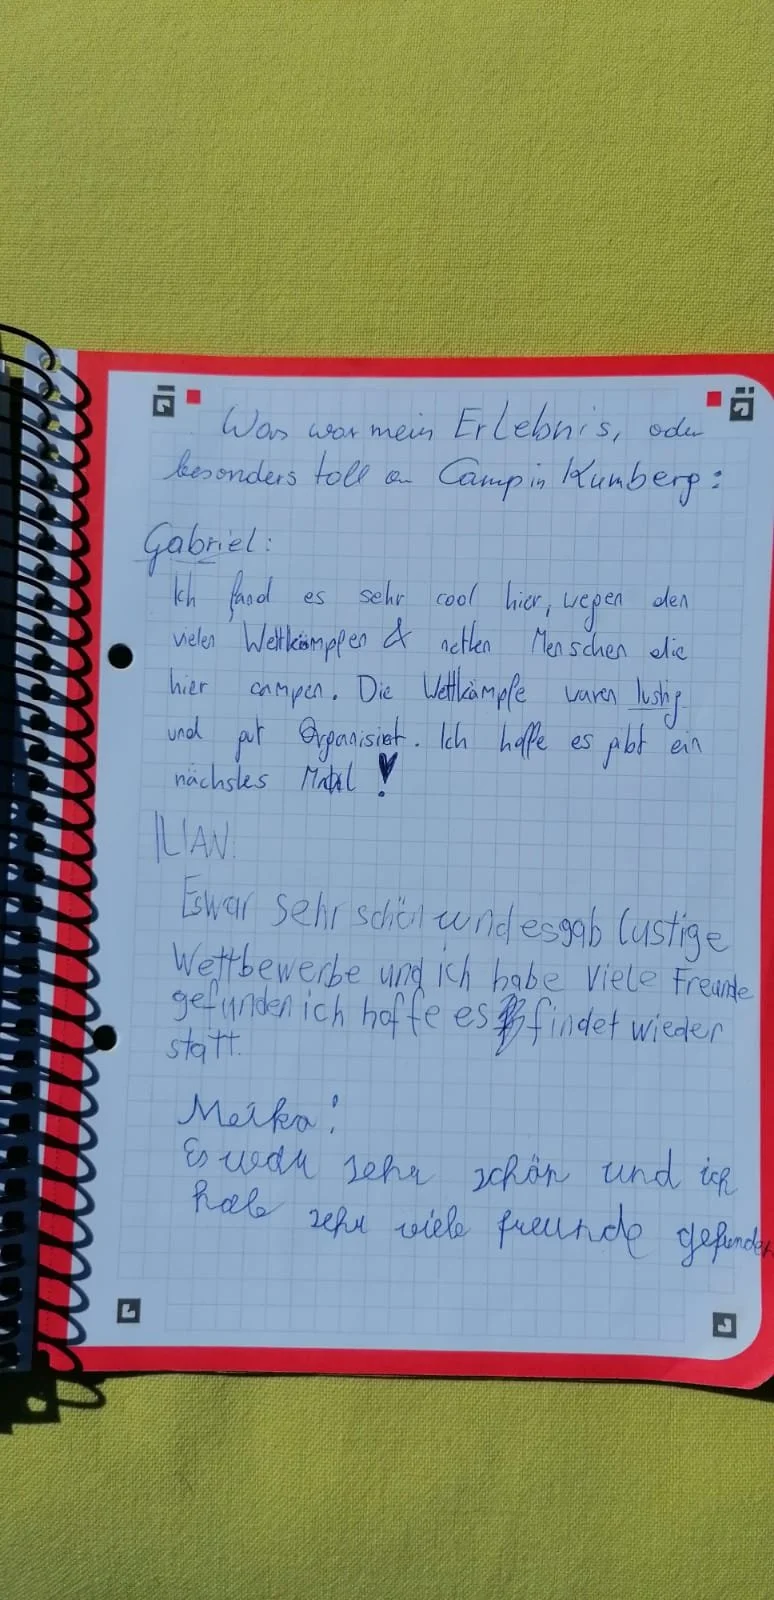 Was war mein Erlebnis, oder
besonders toll an Camp in Kumberg:
Gabriel:
Ich fand es sehr cool hier, wegen den
vielen Wettkämpfen & netten Menschen die
hier campen. Die Wettkämpfe waren lustig
und gut Organisiert. Ich hoffe es gibt ein
nächstes Mal!
ILIAN:
Es war sehr schön und es gab lustige
Wettbewerbe und ich habe viele Freunde
gefunden ich hoffe es findet wieder
statt.
Meika:
Es war sehr schön und ich
habe sehr viele freunde gefunden